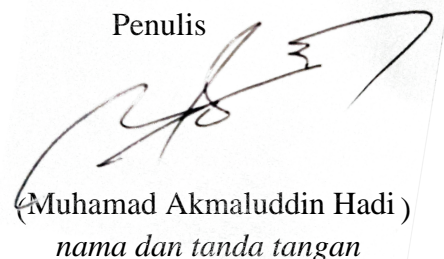 Penulis
(Muhamad Akmaluddin Hadi )
nama dan tanda tangan